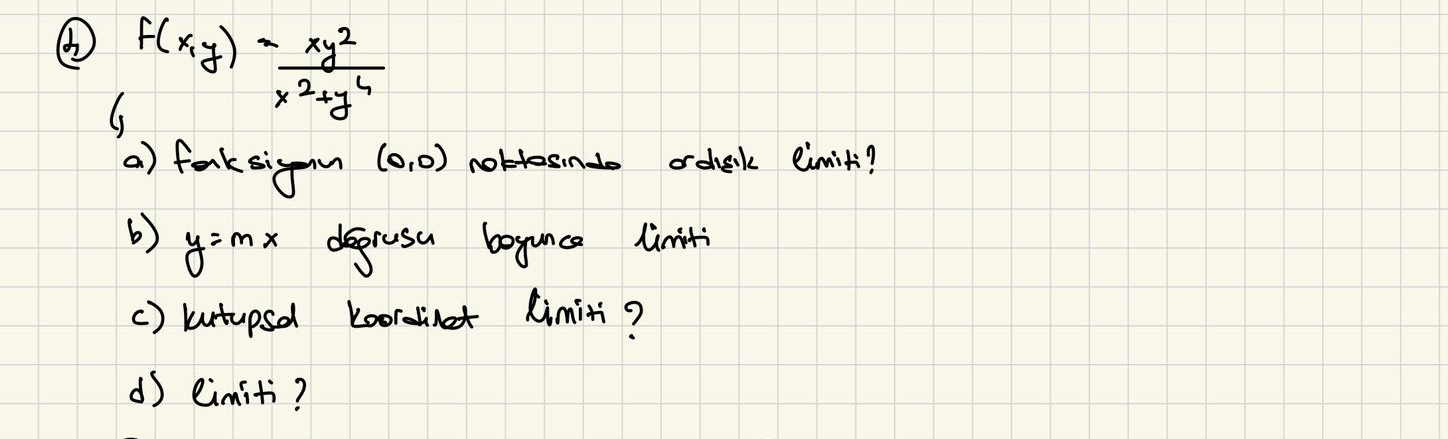 f(x,y) = xy²/(x²+y⁴)
a) fonksiyonun (0,0) noktasında ardışık limiti?
b) y=mx doğrusu boyunca limiti
c) kutupsal koordinat limiti?
d) limiti?